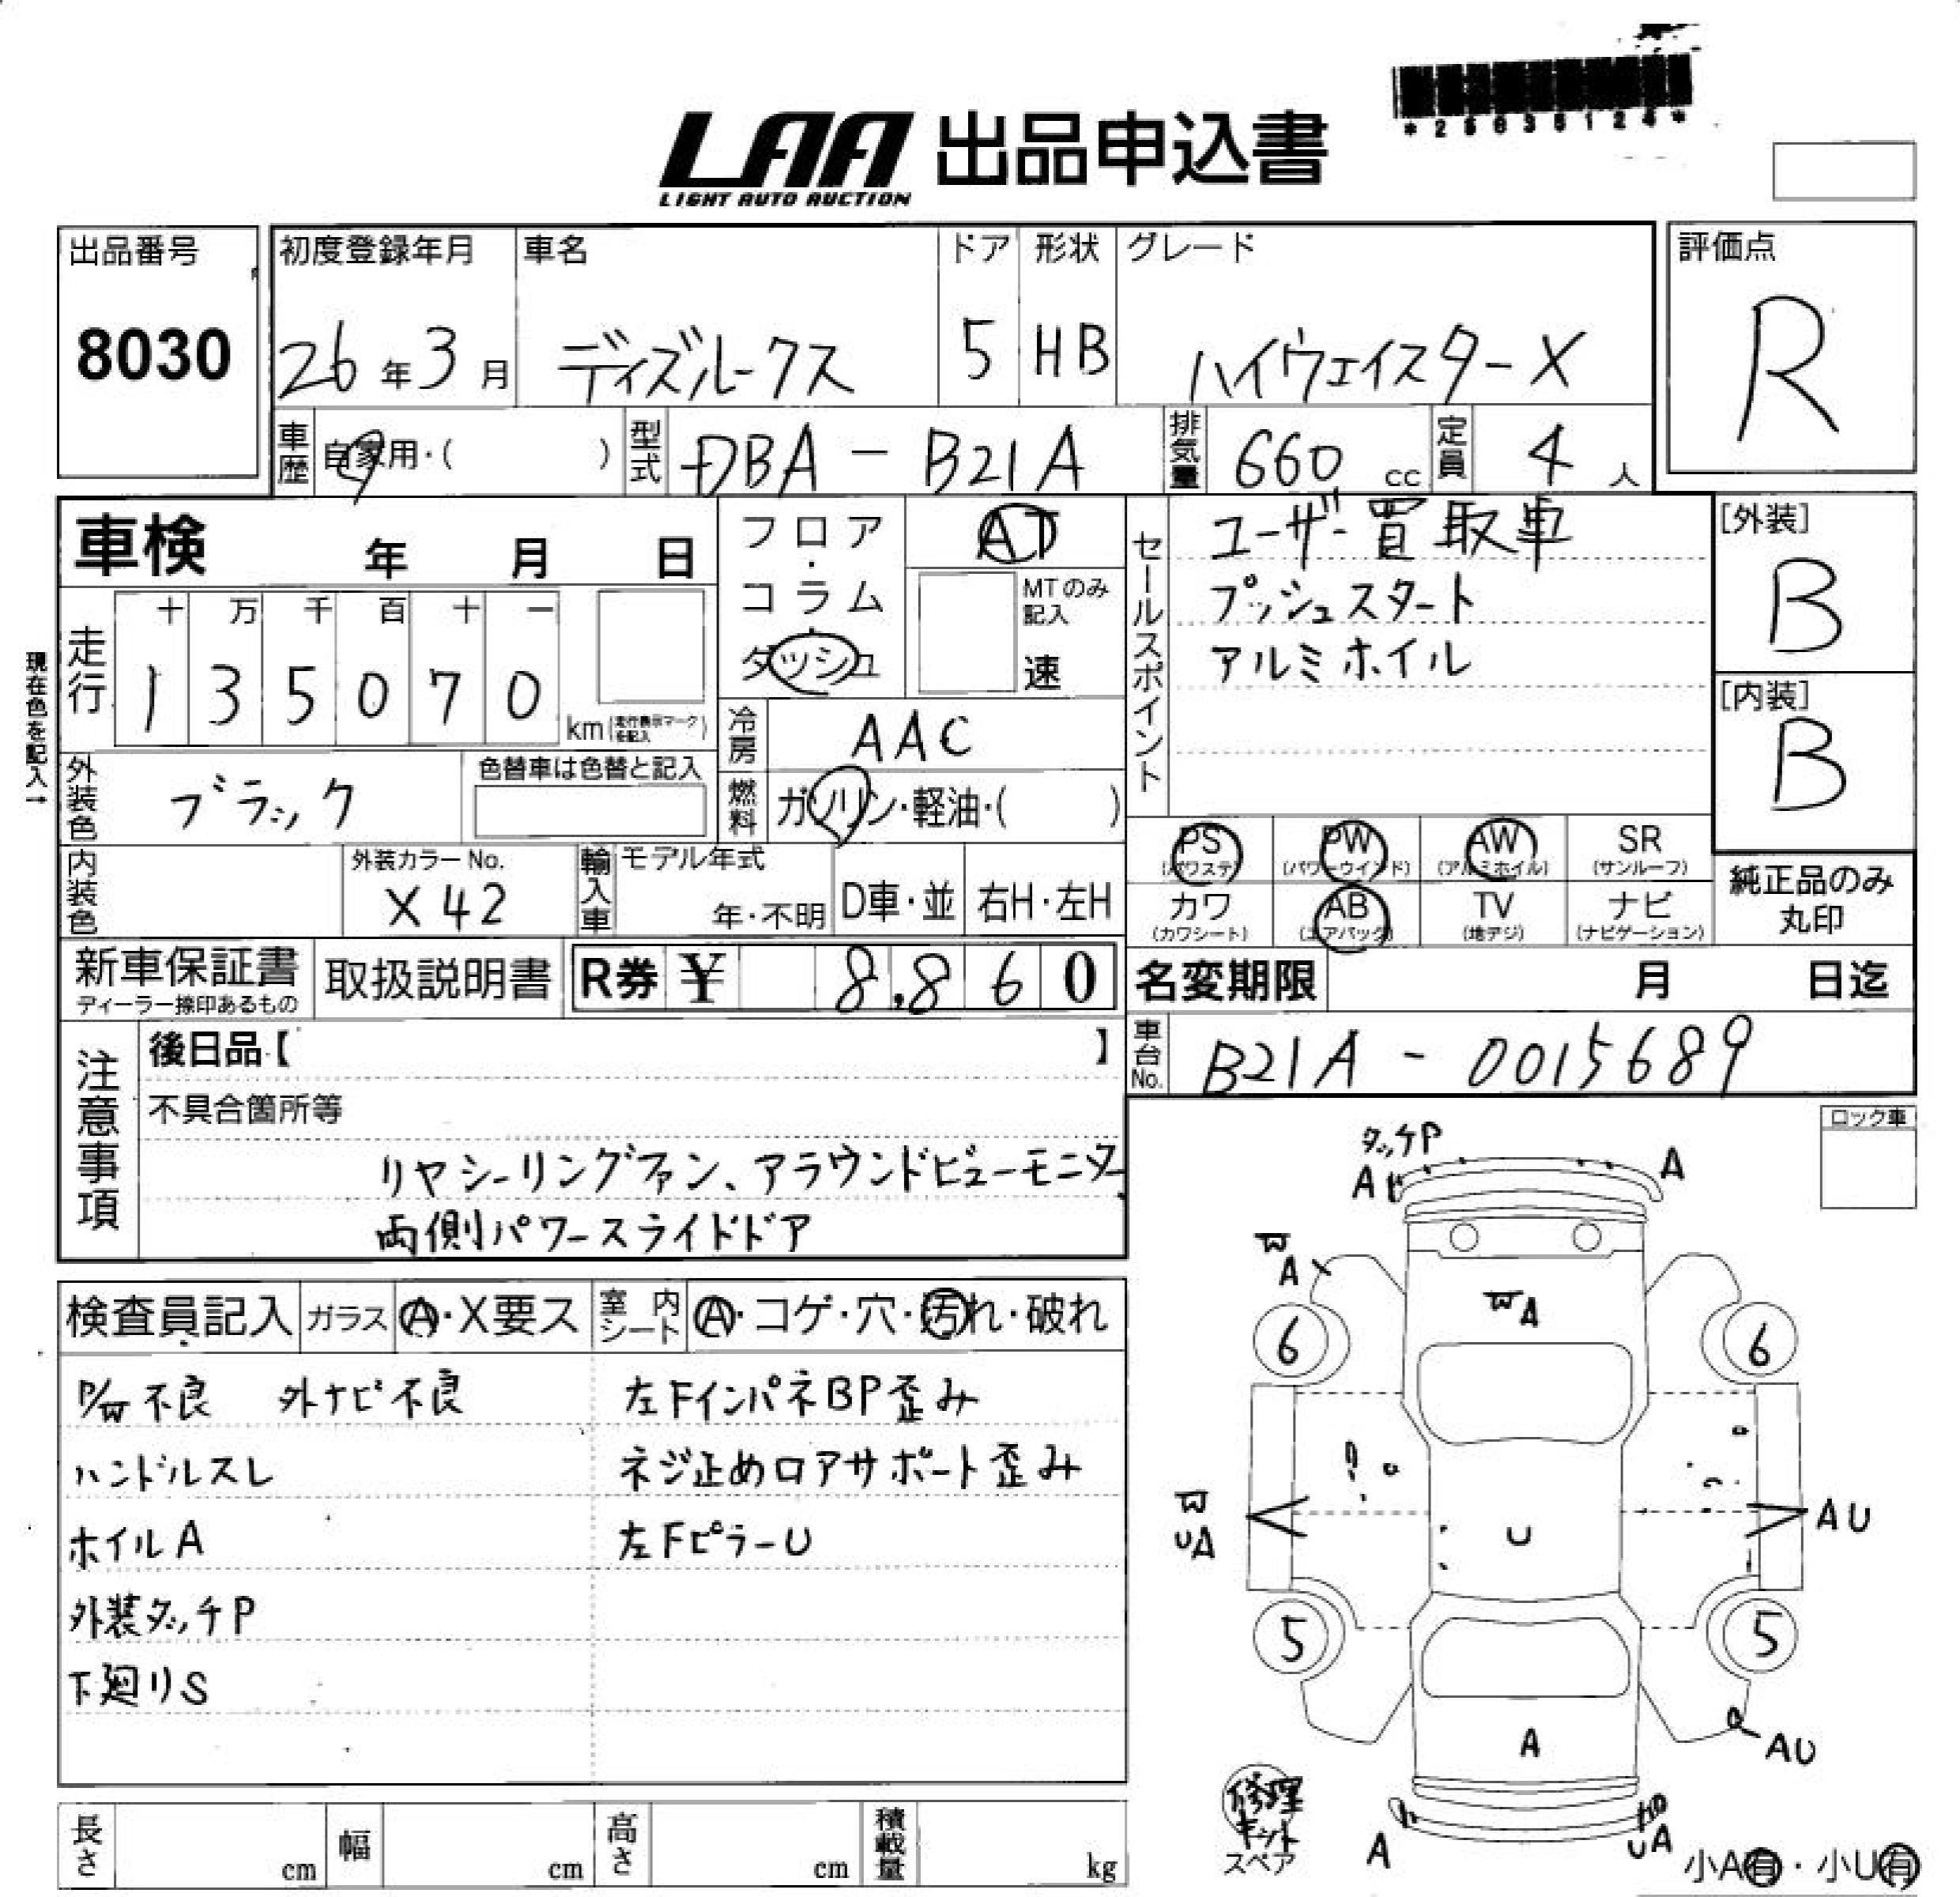 LAA 出品申込書
LIGHT AUTO AUCTION
出品番号
8030
初度登録年月
26年3月
車名
ディズルークス
ドア
5
形状
HB
グレード
ハイウェイスターX
評価点
R
車歴 自家用・( )
型式 DBA-B21A
排気量 660 cc
定員 4 人
車検 年 月 日
現在色を記入→
走行
十 万 千 百 十 一
1 3 5 0 7 0 km(走行表示マークを記入)
フロア・コラム・ダッシュ
AT
MTのみ記入
速
冷房 AAC
燃料 ガソリン・軽油・( )
セールスポイント
ユーザー買取車
プッシュスタート
アルミホイル
[外装]
B
[内装]
B
外装色 ブラック
色替車は色替と記入
内装色
外装カラーNo.
X42
輸入車
モデル年式
年・不明
D車・並
右H・左H
PS (パワステ)
PW (パワーウインド)
AW (アルミホイル)
SR (サンルーフ)
カワ (カワシート)
AB (エアバック)
TV (地デジ)
ナビ (ナビゲーション)
純正品のみ丸印
新車保証書
ディーラー捺印あるもの
取扱説明書
R券 ¥ 8,860
名変期限 月 日迄
車台No. B21A-0015689
注意事項
後日品【 】
不具合箇所等
リヤシーリングファン、アラウンドビューモニター
両側パワースライドドア
ロック車
検査員記入
ガラス A・X要ス
室内シート A・コゲ・穴・汚れ・破れ
P/W不良 外ナビ不良
ハンドルスレ
ホイルA
外装タッチP
下廻りS
左FインパネBP歪み
ネジ止めロアサポート歪み
左FピラーU
タッチP
A
A
W
A
WA
6
6
W
UA
U
AU
5
5
A
AU
A
UA
修理キット
スペア
小A有・小U有
長さ cm
幅 cm
高さ cm
積載量 kg